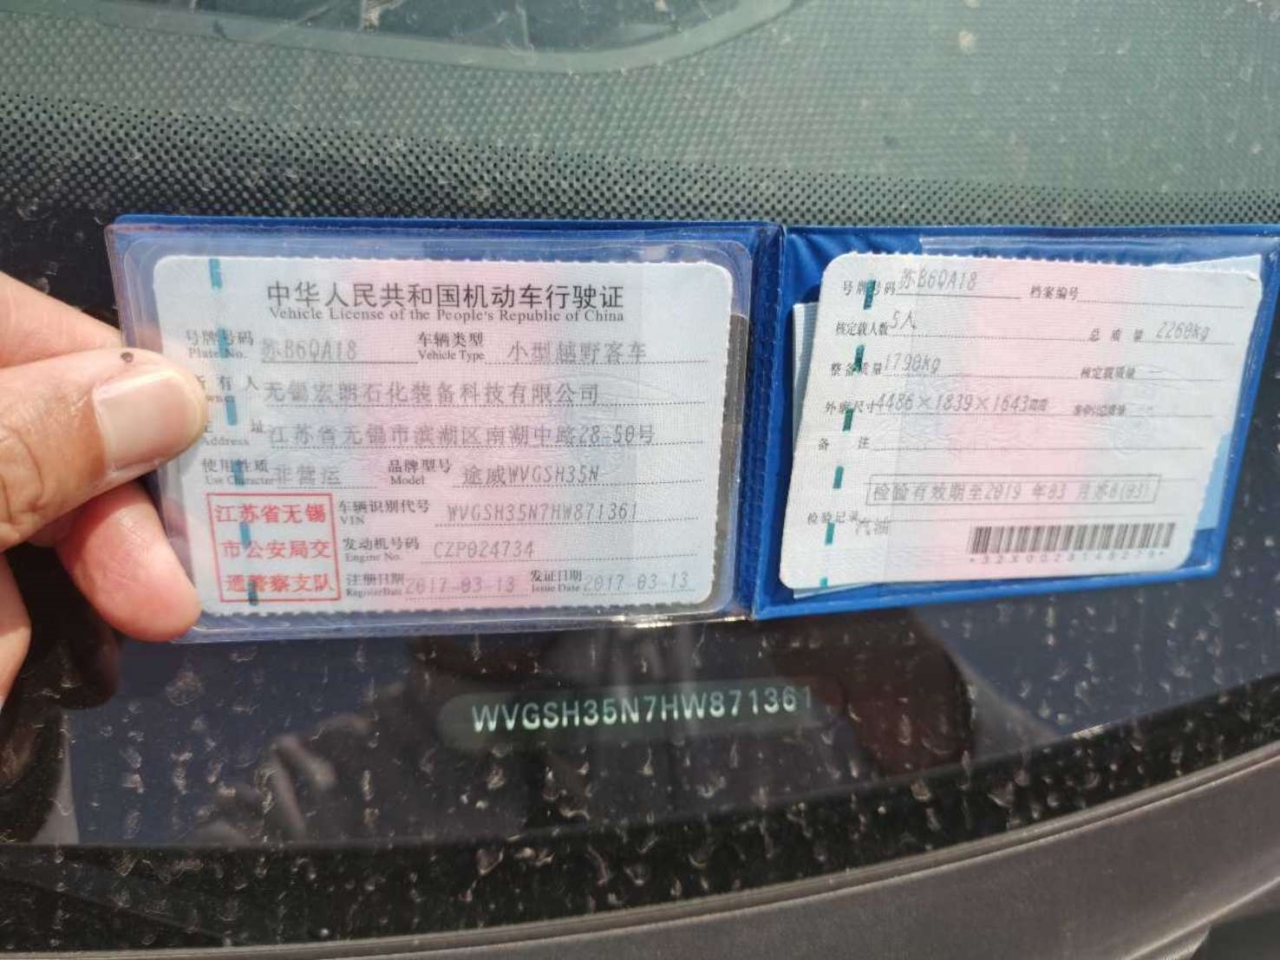 中华人民共和国机动车行驶证
Vehicle License of the People's Republic of China
号牌号码 Plate No. 苏B6QA18 车辆类型 Vehicle Type 小型越野客车
所有人 Owner 无锡宏朗石化装备科技有限公司
住址 Address 江苏省无锡市滨湖区南湖中路28-50号
使用性质 Use Character 非营运 品牌型号 Model 途威WVGSH35N
江苏省无锡
市公安局交
通警察支队
车辆识别代号 VIN WVGSH35N7HW871361
发动机号码 Engine No. CZP024734
注册日期 Register Date 2017-03-13 发证日期 Issue Date 2017-03-13
号牌号码 苏B6QA18 档案编号
核定载人数 5人 总质量 2260kg
整备质量 1790kg 核定载质量
外廓尺寸 4486×1839×1643mm 准牵引总质量
备注
检验有效期至2019年03月苏B(03)
检验记录 汽油
WVGSH35N7HW871361